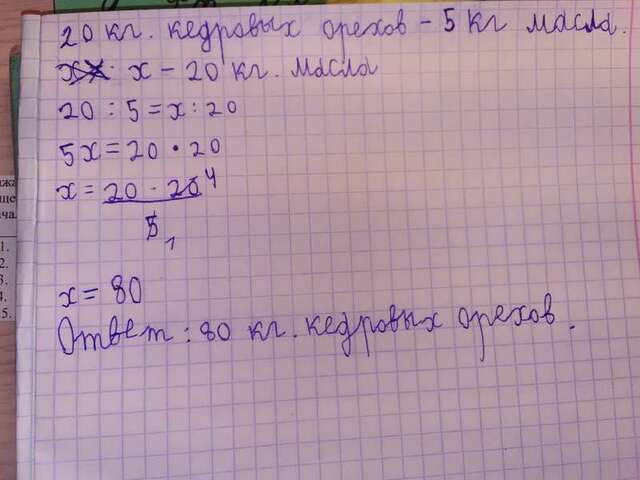 20 кг. кедровых орехов - 5 кг масла.
x - 20 кг. масла
20 : 5 = x : 20
5x = 20 · 20
x = 20 · 20 4
5 1
x = 80
Ответ : 80 кг. кедровых орехов.
1.
2.
3.
4.
5.